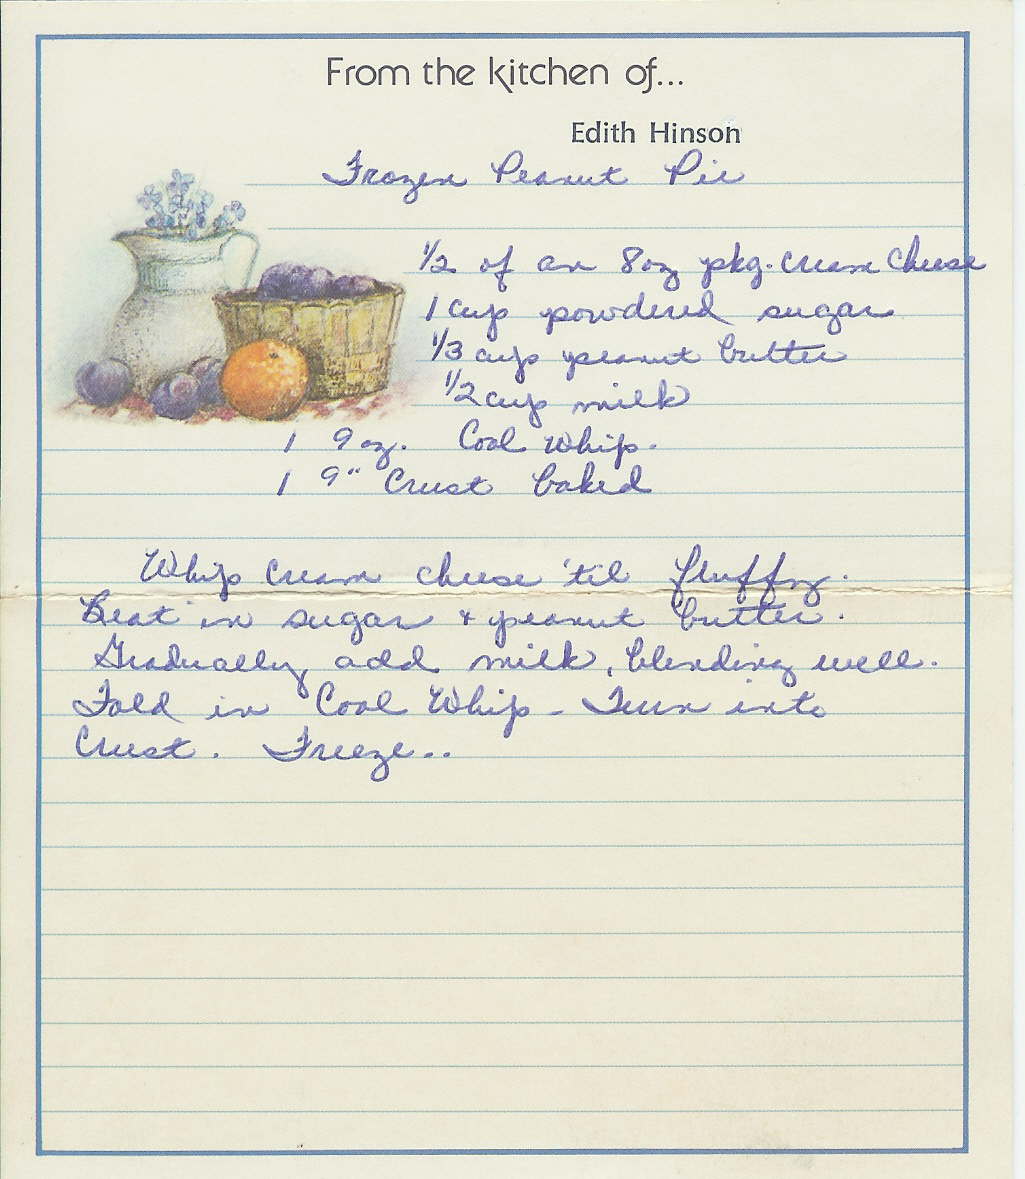 From the kitchen of...
Edith Hinson
Frozen Peanut Pie
1/2 of an 8oz pkg. cream cheese
1 cup powdered sugar
1/3 cup peanut butter
1/2 cup milk
1 9 oz. Cool Whip.
1 9" Crust baked
Whip cream cheese 'til fluffy.
Beat in sugar & peanut butter.
Gradually add milk, blending well.
Fold in Cool Whip - Turn into
Crust. Freeze..